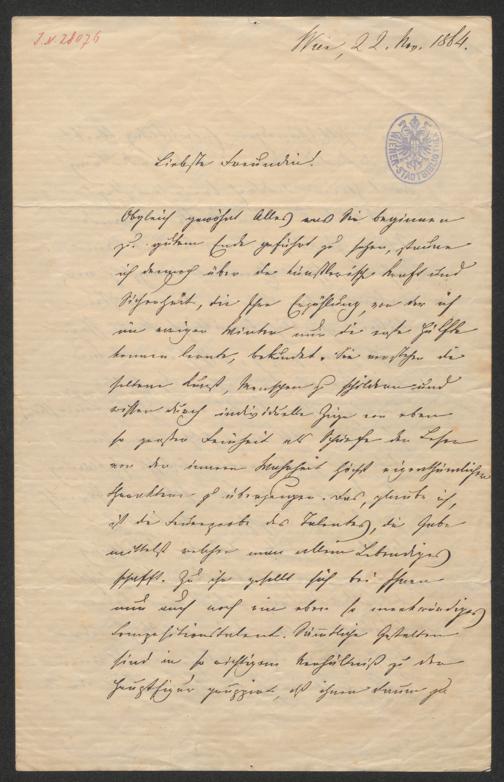 J.N. 28076
Wien, 22. Nov. 1884.
WIENER-STADTBIBLIOTHEK
Liebste Freundin!
Obgleich gewöhnt Alles was Sie beginnen
zu gutem Ende geführt zu sehen, staune
ich dennoch über die künstlerische Kraft und
Sicherheit, die Ihre Erzählung, von der ich
im vorigen Winter nur die erste Hälfte
kennen lernte, bekundet. Sie verstehen die
seltene Kunst, Menschen zu schildern und
wissen durch individuelle Züge von eben
so großer Feinheit als Schärfe den Leser
von der innern Wahrheit höchst eigenthümlicher
Charaktere zu überzeugen. Das, glaube ich,
ist die Feuerprobe des Talentes, die Gabe
mittelst welcher man allein Lebendiges
schafft. Zu ihr gesellt sich bei Ihnen
nun auch noch ein eben so merkwürdiges
Compositionstalent. Sämmtliche Gestalten
sind in so richtigem Verhältniß zu der
Hauptfigur gruppirt, daß ihnen kaum zu